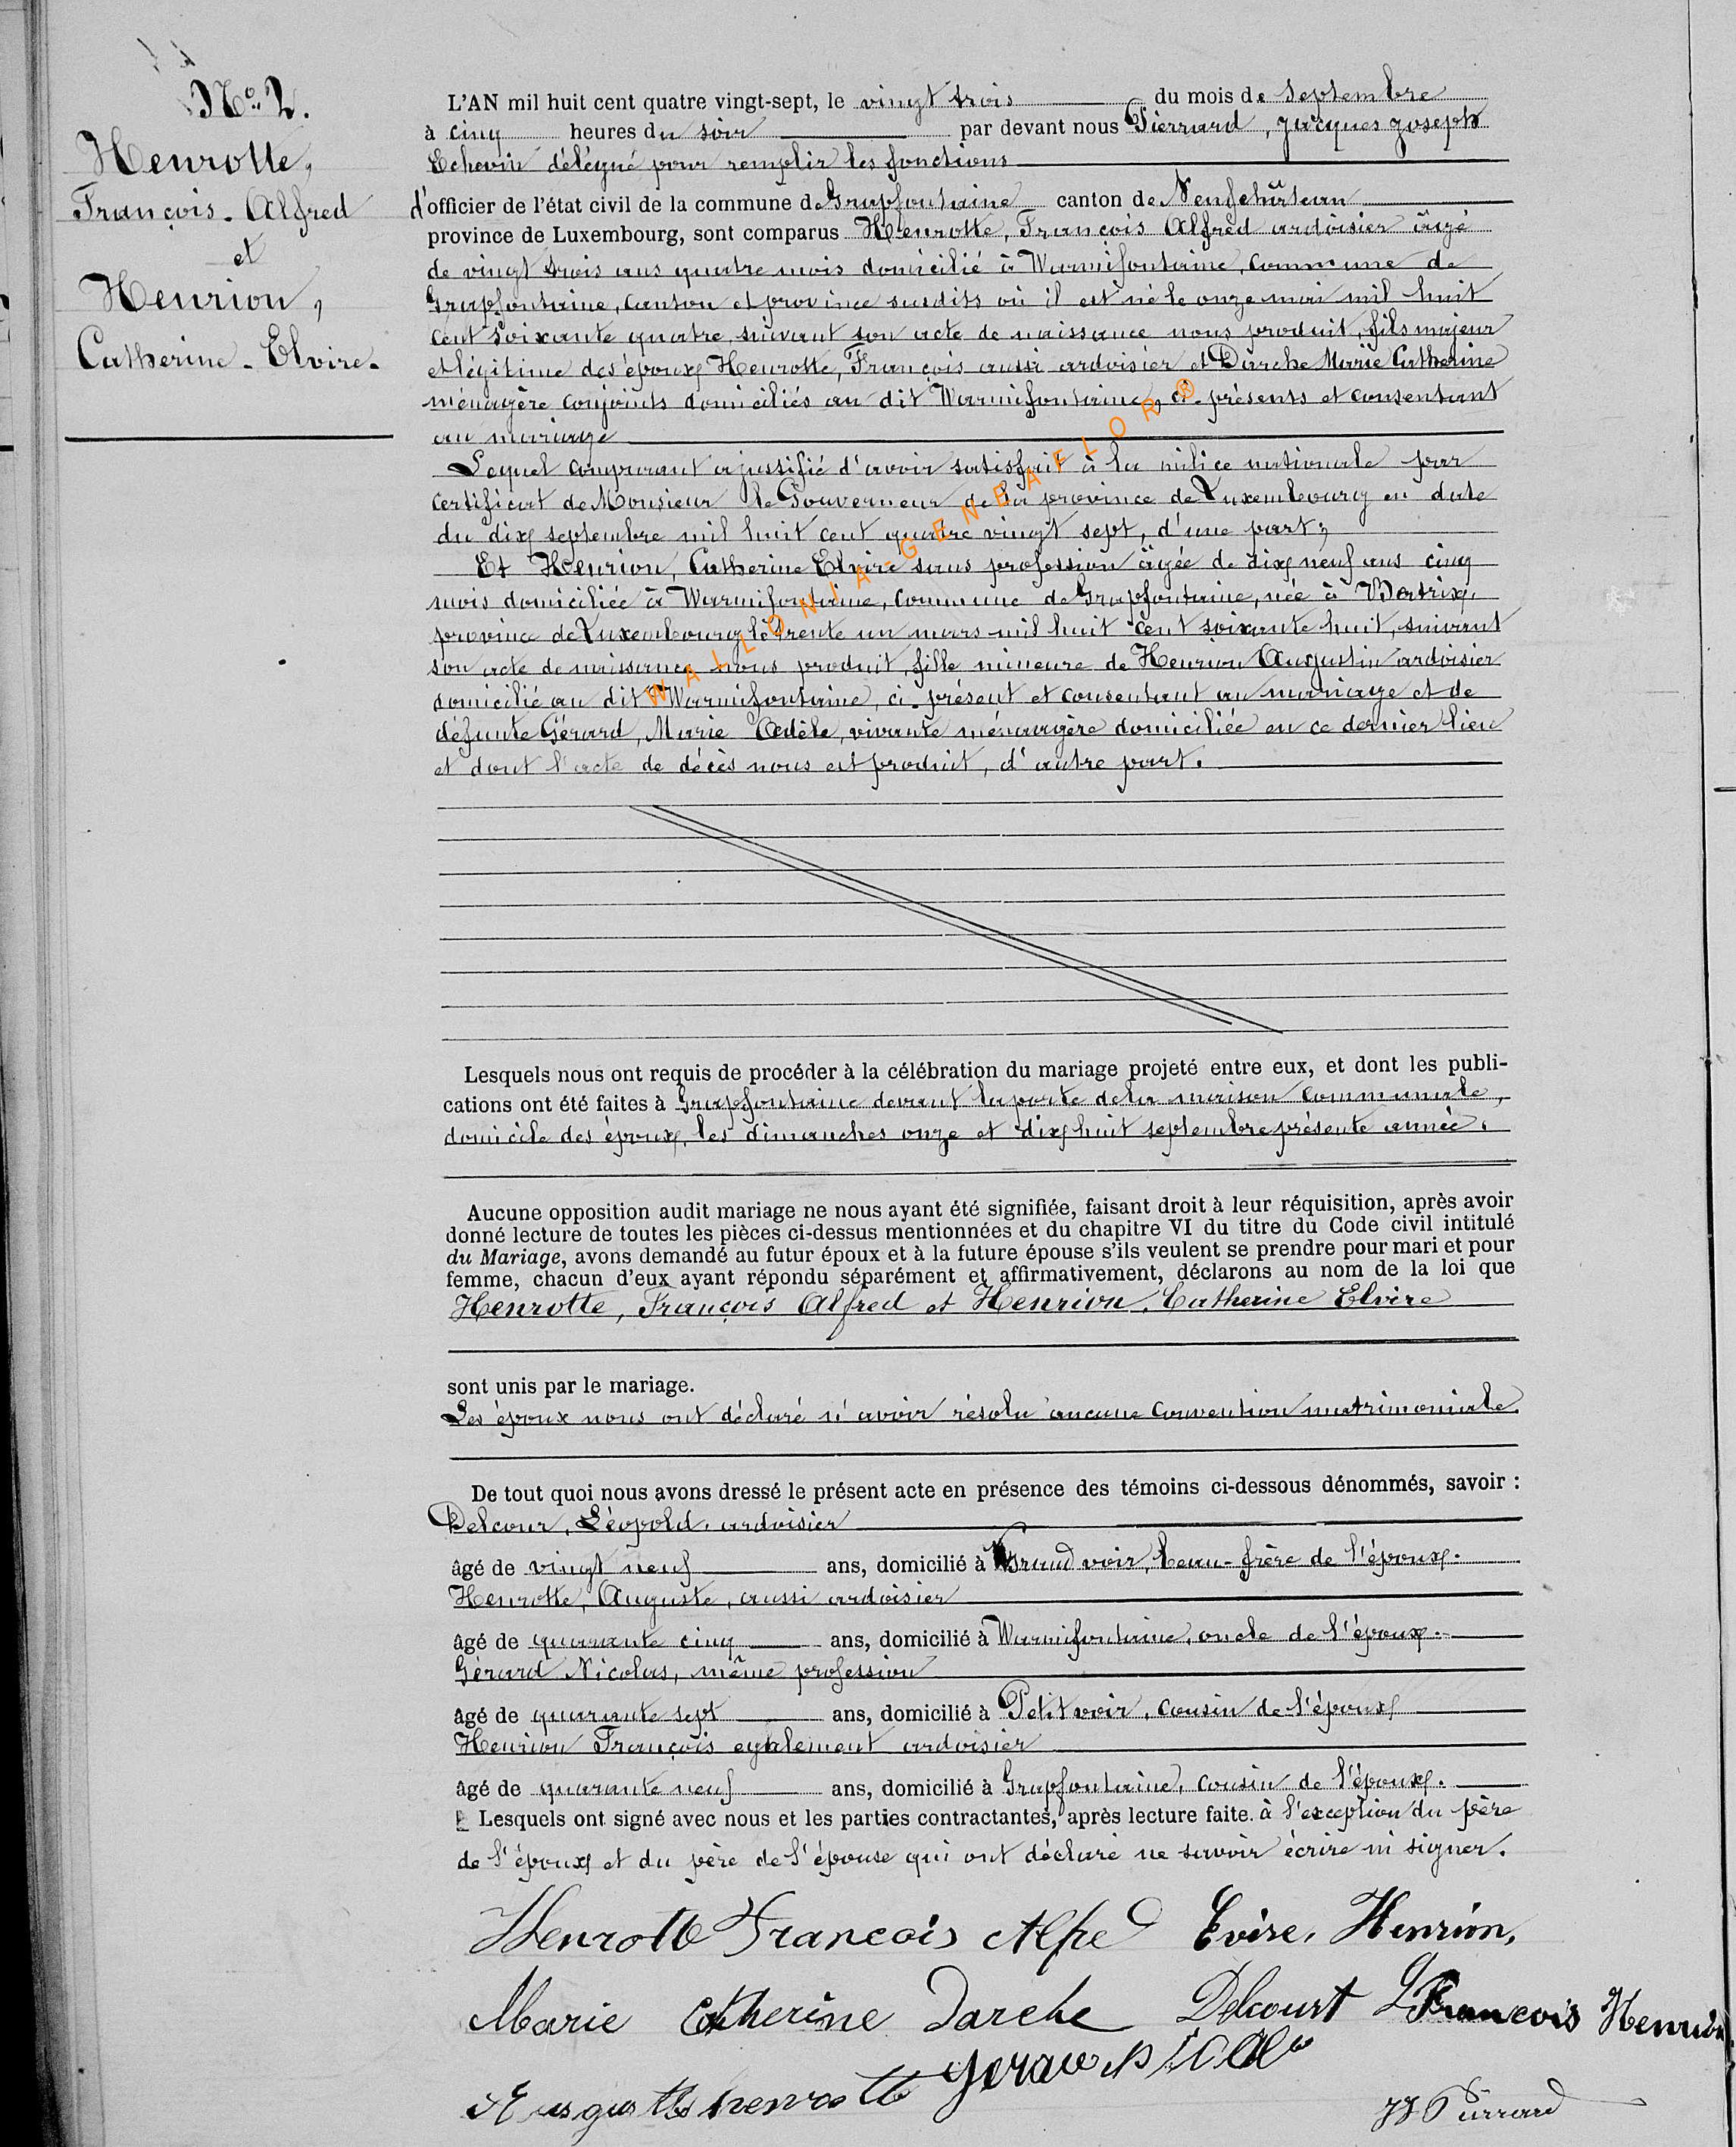 N° 2.
Henrotte,
François-Alfred
et
Henrion,
Catherine-Elvire.
L'AN mil huit cent quatre vingt-sept, le vingt trois du mois de septembre
à cinq heures du soir par devant nous Pierrard, Jacques Joseph
Echevin délégué pour remplir les fonctions
d'officier de l'état civil de la commune de Grapfontaine canton de Neufchâteau
province de Luxembourg, sont comparus Henrotte, François Alfred ardoisier âgé
de vingt trois ans quatre mois domicilié à Warmifontaine, commune de
Grapfontaine, canton et province susdits où il est né le onze mai mil huit
cent soixante quatre, suivant son acte de naissance nous produit, fils majeur
et légitime des époux Henrotte, François aussi ardoisier et Darche Marie Catherine
ménagère conjoints domiciliés au dit Warmifontaine, ci-présents et consentant
au mariage
Lequel comparant a justifié d'avoir satisfait à la milice nationale par
certificat de Monsieur le Gouverneur de la province de Luxembourg en date
du dix septembre mil huit cent quatre vingt sept, d'une part;
Et Henrion, Catherine Elvire sans profession âgée de dix neuf ans cinq
mois domiciliée à Warmifontaine, commune de Grapfontaine, née à Bertrix,
province de Luxembourg le trente un mars mil huit cent soixante huit, suivant
son acte de naissance nous produit, fille mineure de Henrion Augustin ardoisier
domicilié au dit Warmifontaine, ci-présent et consentant au mariage et de
défunte Gérard, Marie Adèle, vivante ménagère domiciliée en ce dernier lieu
et dont l'acte de décès nous est produit, d'autre part.
WALLONIA-GENEAFLOR®
Lesquels nous ont requis de procéder à la célébration du mariage projeté entre eux, et dont les publi-
cations ont été faites à Grapfontaine devant la porte de la maison communale,
domicile des époux, les dimanches onze et dix huit septembre présente année.
Aucune opposition audit mariage ne nous ayant été signifiée, faisant droit à leur réquisition, après avoir
donné lecture de toutes les pièces ci-dessus mentionnées et du chapitre VI du titre du Code civil intitulé
du Mariage, avons demandé au futur époux et à la future épouse s'ils veulent se prendre pour mari et pour
femme, chacun d'eux ayant répondu séparément et affirmativement, déclarons au nom de la loi que
Henrotte, François Alfred et Henrion, Catherine Elvire
sont unis par le mariage.
Les époux nous ont déclaré n'avoir résolu aucune convention matrimoniale.
De tout quoi nous avons dressé le présent acte en présence des témoins ci-dessous dénommés, savoir :
Delcour, Léopold, ardoisier
âgé de vingt neuf ans, domicilié à Grand voir, beau-frère de l'époux.
Henrotte, Auguste, aussi ardoisier
âgé de quarante cinq ans, domicilié à Warmifontaine, oncle de l'époux.
Gérard Nicolas, même profession
âgé de quarante sept ans, domicilié à Petit voir, cousin de l'époux
Henrion François egalement ardoisier
âgé de quarante neuf ans, domicilié à Grapfontaine, cousin de l'époux.
Lesquels ont signé avec nous et les parties contractantes, après lecture faite. à l'exception du père
de l'époux et du père de l'épouse qui ont déclaré ne savoir écrire ni signer.
Henrotte Francois Alfred Evire, Henrion,
Marie Catherine Darche Delcourt L Francois Henrion
Auguste henrotte Gerard JJ Pierrard